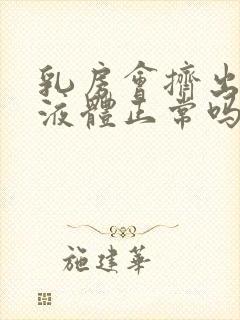 乳房會擠出
液體正常嗎
施建華